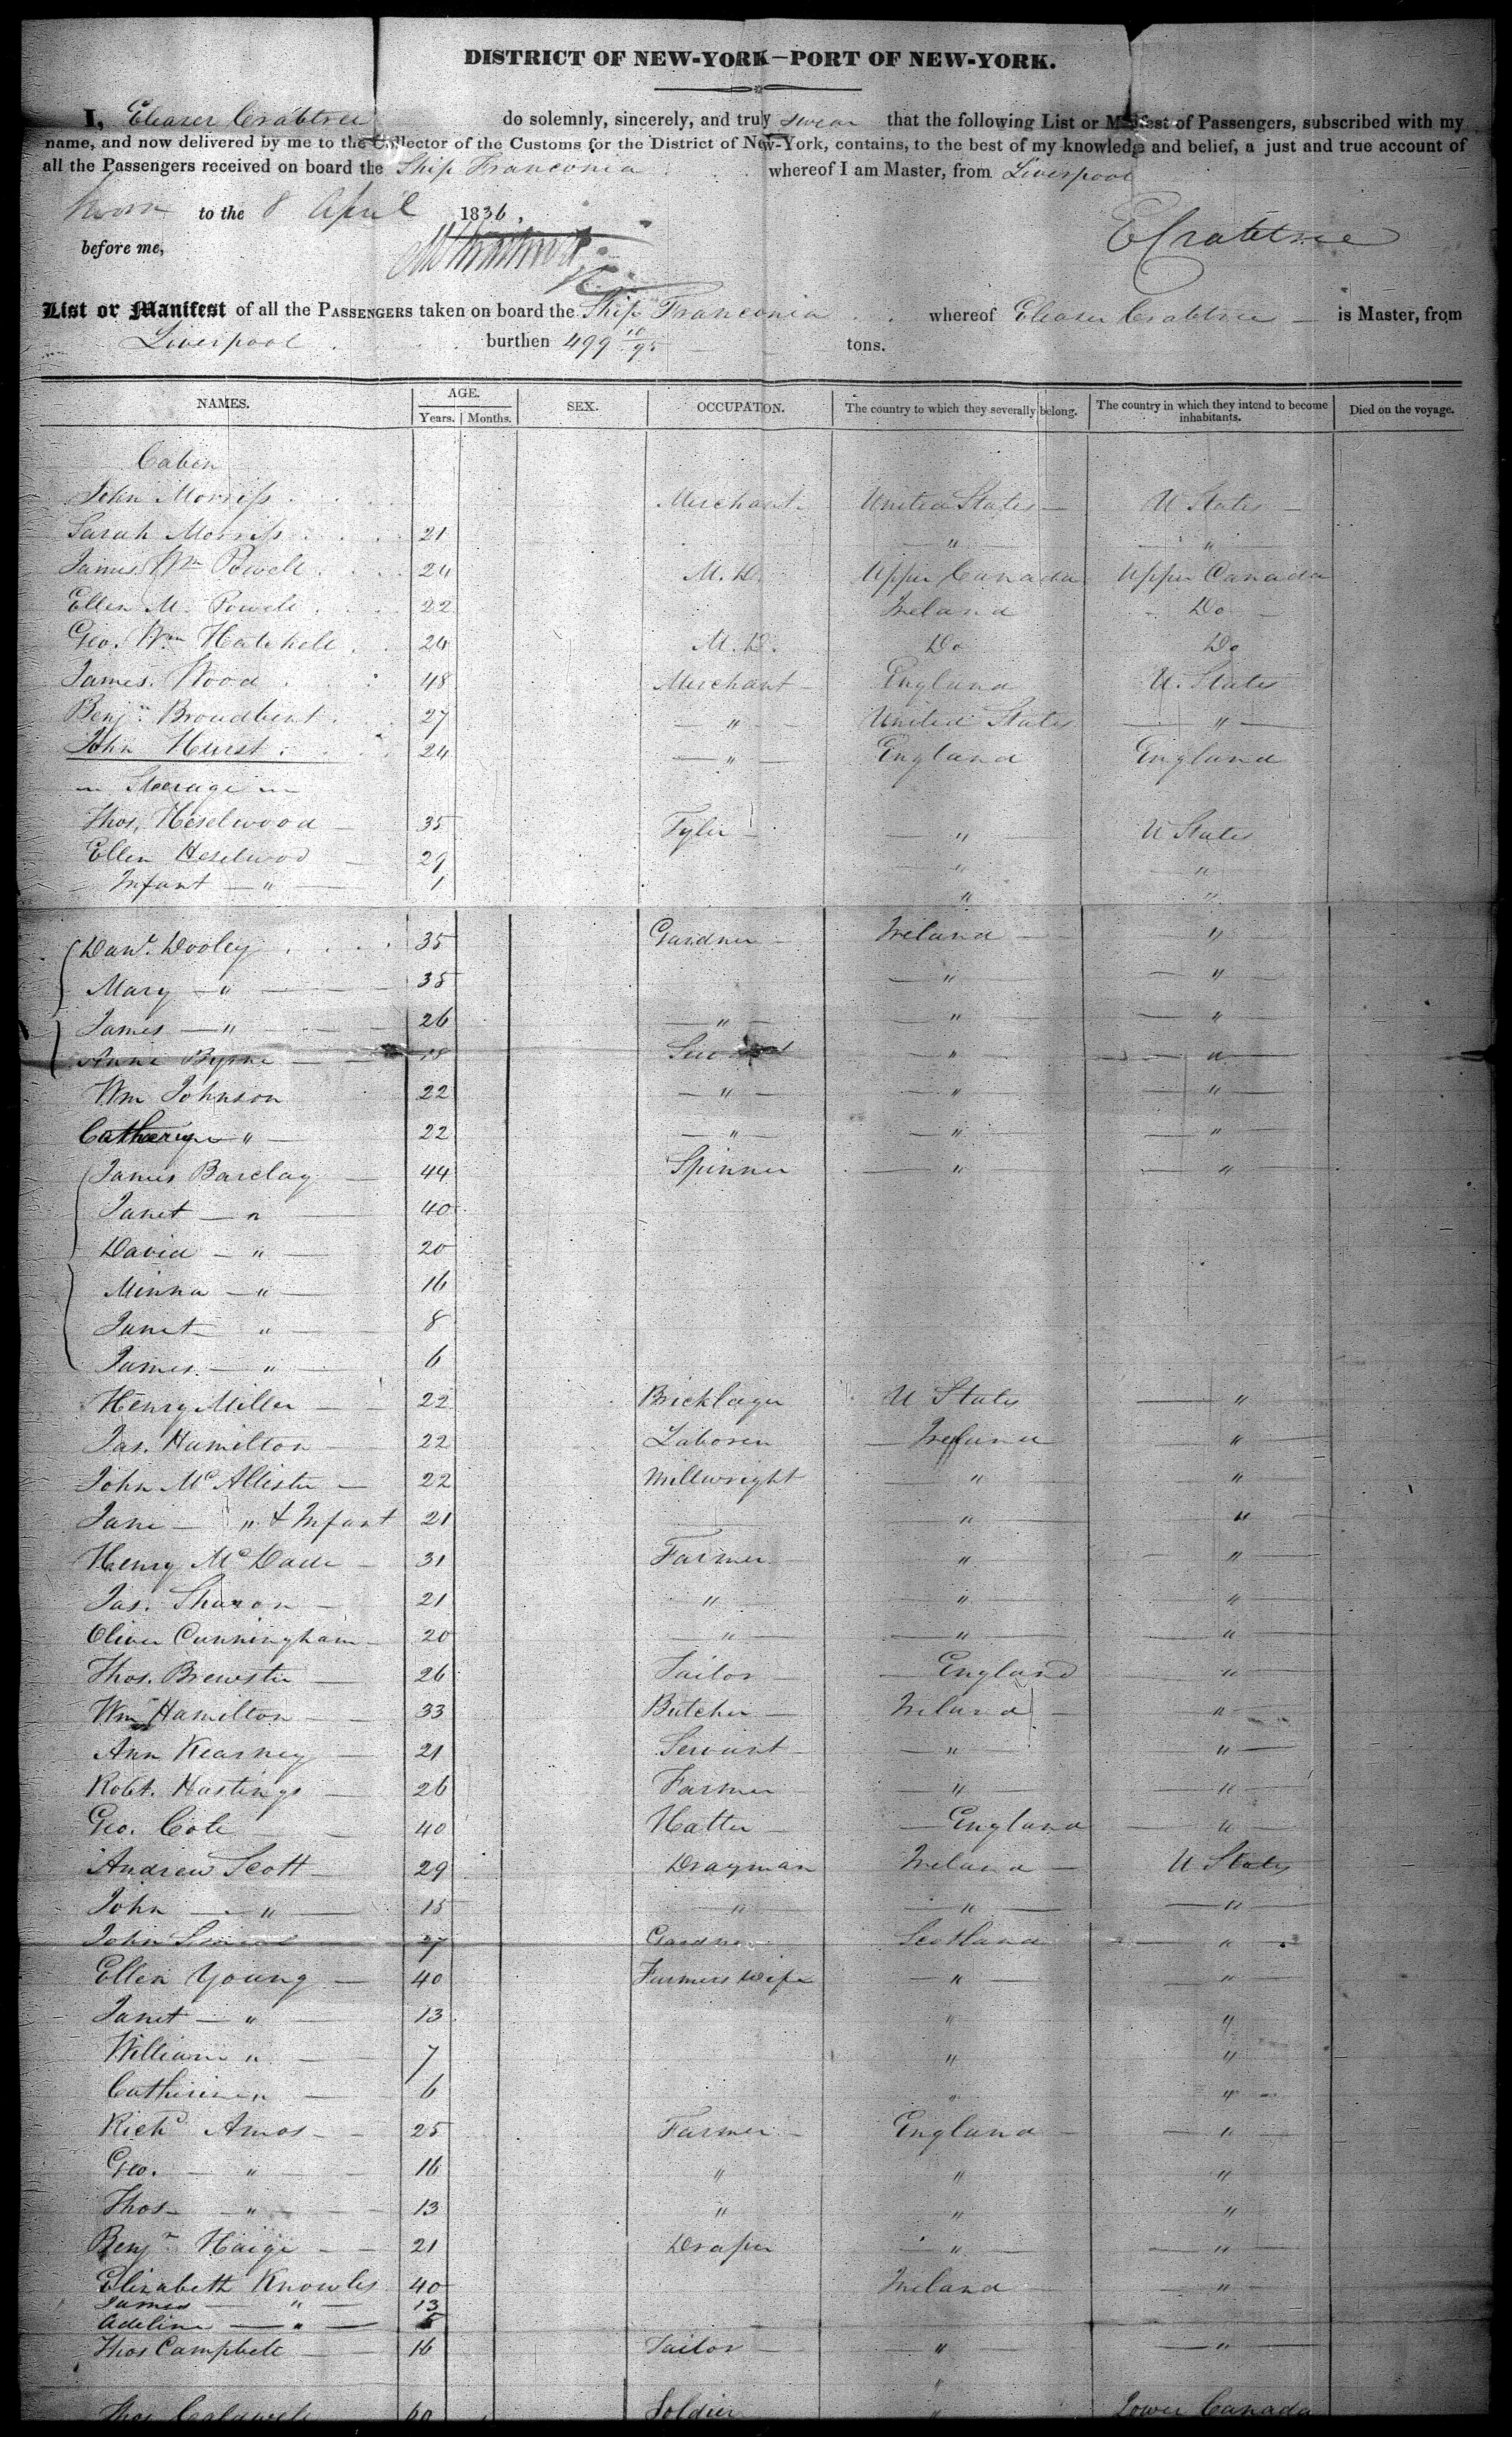 DISTRICT OF NEW-YORK—PORT OF NEW-YORK.
I, Eleazer Crabtree do solemnly, sincerely, and truly swear that the following List or Manifest of Passengers, subscribed with my
name, and now delivered by me to the Collector of the Customs for the District of New-York, contains, to the best of my knowledge and belief, a just and true account of
all the Passengers received on board the Ship Franconia whereof I am Master, from Liverpool
Sworn to the 8 April 1836,
before me,
ECrabtree
List or Manifest of all the PASSENGERS taken on board the Ship Franconia whereof Eleazer Crabtree is Master, from
Liverpool burthen 499 10/95 tons.
NAMES. AGE. Years. Months. SEX. OCCUPATON. The country to which they severally belong. The country in which they intend to become inhabitants. Died on the voyage.
Cabin
John Morriss Merchant United States U States
Sarah Morriss 21 " "
James Wm Powell 24 M.D. Upper Canada Upper Canada
Ellen M. Powell 22 Ireland Do
Geo. Wm Hatchell 24 M.D. Do Do
James Wood 48 Merchant England U. States
Benjn Broadbent 27 " United States "
John Hurst 24 " England England
Steerage
Thos. Heselwood 35 Tyler " U States
Ellen Heselwood 29 " "
Infant " 1 " "
Danl. Dooley 35 Gardner Ireland "
Mary " 35 " "
James " 26 " " "
Anne Byrne 18 Servant " "
Wm Johnson 22 " " "
Catherine " 22 " " "
James Barclay 44 Spinner " "
Janet " 40
David " 20
Minna " 16
Janet " 8
James " 6
Henry Miller 22 Bricklayer U States "
Jas. Hamilton 22 Laborer Ireland "
John McAllister 22 Millwright " "
Jane " & Infant 21 " "
Henry McDade 31 Farmer " "
Jas. Sharon 21 " " "
Oliver Cunningham 20 " " "
Thos. Brewster 26 Tailor England "
Wm Hamilton 33 Butcher Ireland "
Ann Kearney 21 Servant " "
Robt. Hastings 26 Farmer " "
Geo. Cole 40 Hatter England "
Andrew Scott 29 Drayman Ireland U States
John " 15 " " "
John 27 Gardner Scotland "
Ellen Young 40 Farmers Wife " "
Janet " 13 " "
William " 7 " "
Catherine " 6 " "
Richd Amos 25 Farmer England "
Geo. " 16 " " "
Thos " 13 " " "
Benjn Haige 21 Draper " "
Elizabeth Knowles 40 Ireland "
James " 13
Adeline "
Thos Campbell 16 Tailor " "
"
Thos Caldwell 60 Soldier " Lower Canada